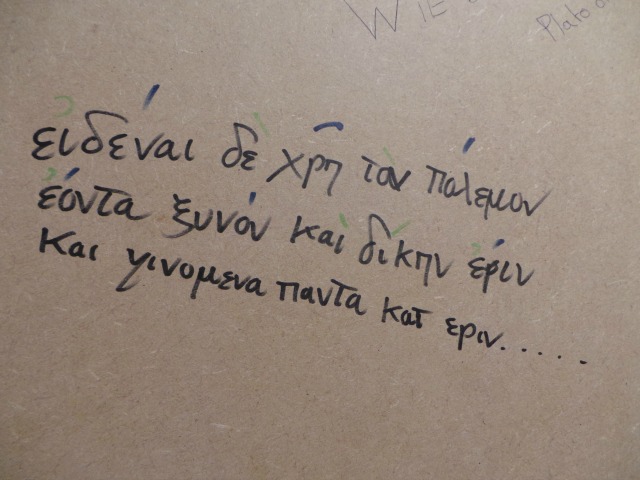 WIE
Plato
εἰδέναι δὲ χρῆ τὸν πόλεμον
ἐόντα ξυνόν καὶ δίκην ἔριν
και γινομενα παντα κατ εριν.....